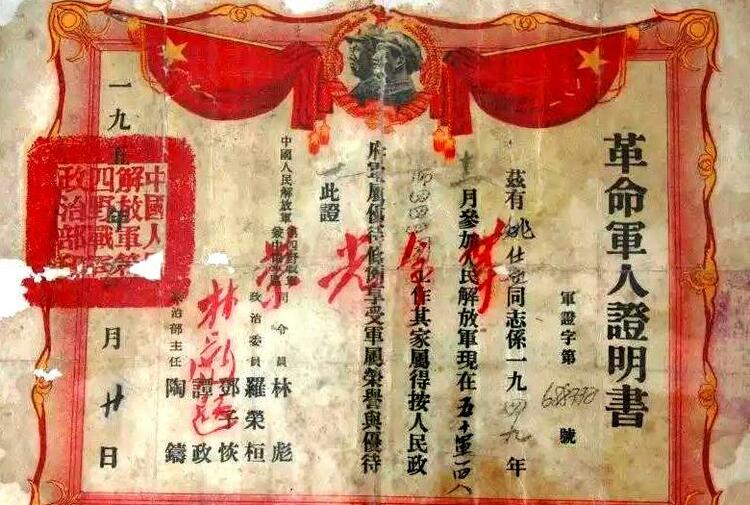 革命軍人證明書
軍證字第 號
茲有姚仕 同志係一九四九年
月參加人民解放軍現在五十軍一四八
工作其家屬得按人民政
府軍屬優待條例享受軍屬榮譽與優待
此證
革命光榮
中國人民解放軍第四野戰軍
司令員 林彪
政治委員 羅榮桓
鄧子恢
譚政
政治部主任 陶鑄
一九五 年 月廿日
中國人民
解放軍第
四野戰軍
政治部印